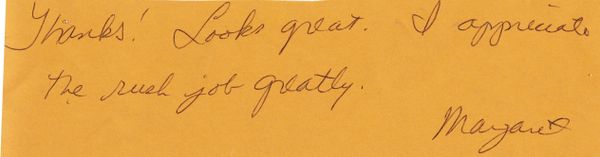 Thanks! Looks great. I appreciate
the rush job greatly.
Margaret